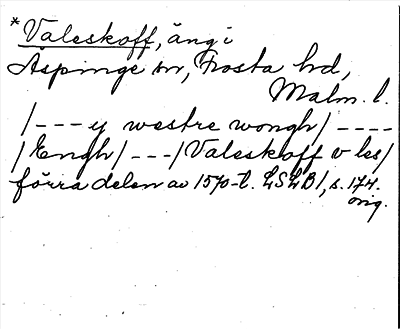 * Valeskoff, äng i
Äspinge sn, Frosta hd,
Malm. l.
/---- y westre wongh/ ----
/Engh/ ---/Valeskoff v les/
förra delen av 1570-t. LSLB 1, s. 174.
orig.